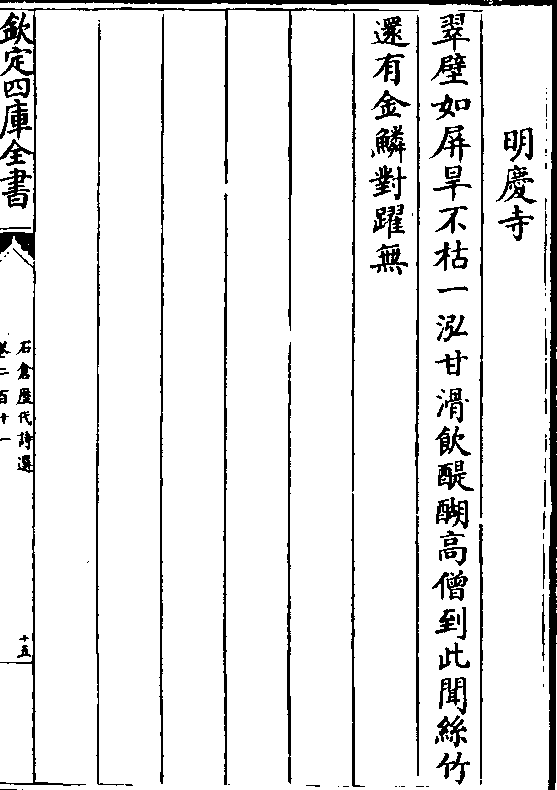 明慶寺
翠壁如屏旱不枯一泓甘滑飲醍醐高僧到此聞絲竹
還有金鱗對躍無
欽定四庫全書
石倉歷代詩選
卷二百十一
十五